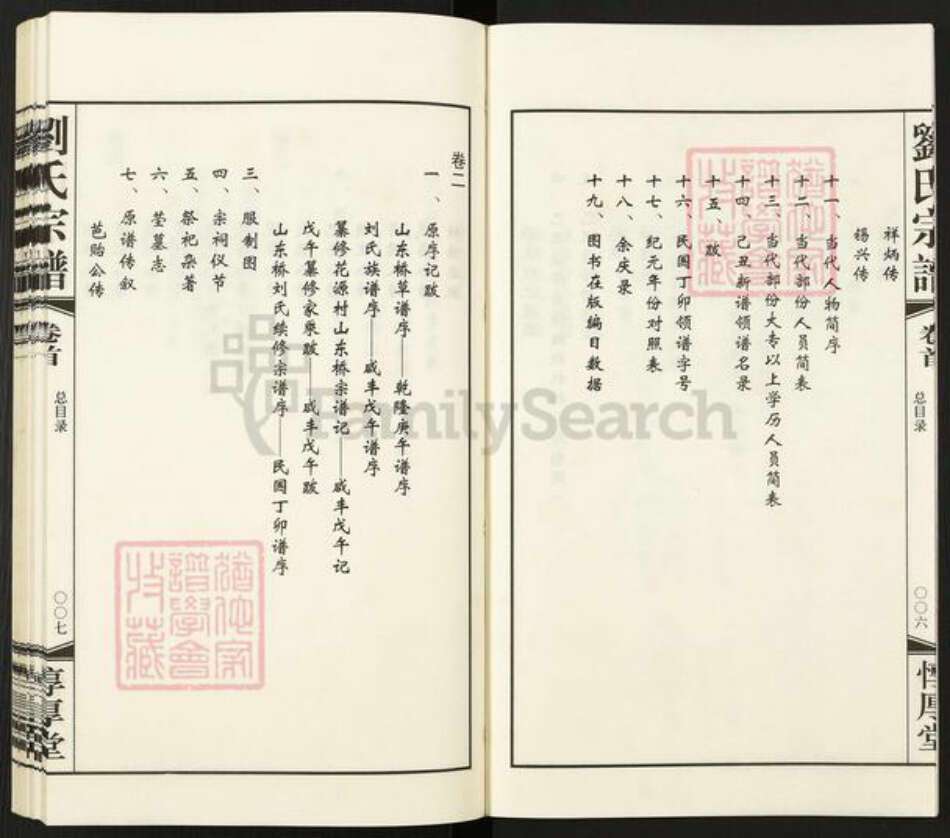 劉氏宗譜
卷首
总目录
〇〇六
惇厚堂
祥炳传
锡兴传
十一、当代人物简序
十二、当代部份人员简表
十三、当代部份大专以上学历人员简表
十四、己丑新谱领谱名录
十五、跋
十六、民国丁卯领谱字号
十七、纪元年份对照表
十八、余庆录
十九、图书在版编目数据
卷二
一、原序记跋
山东桥草谱序——乾隆庚午谱序
刘氏族谱序——咸丰戊午谱序
纂修花源村山东桥宗谱记——咸丰戊午记
戊午纂修家乘跋——咸丰戊午跋
山东桥刘氏续修宗谱序——民国丁卯谱序
三、服制图
四、宗祠仪节
五、祭祀杂著
六、茔墓志
七、原谱传叙
芭贻公传
劉氏宗譜
卷首
总目录
〇〇七
惇厚堂
FamilySearch
譜學會
收藏